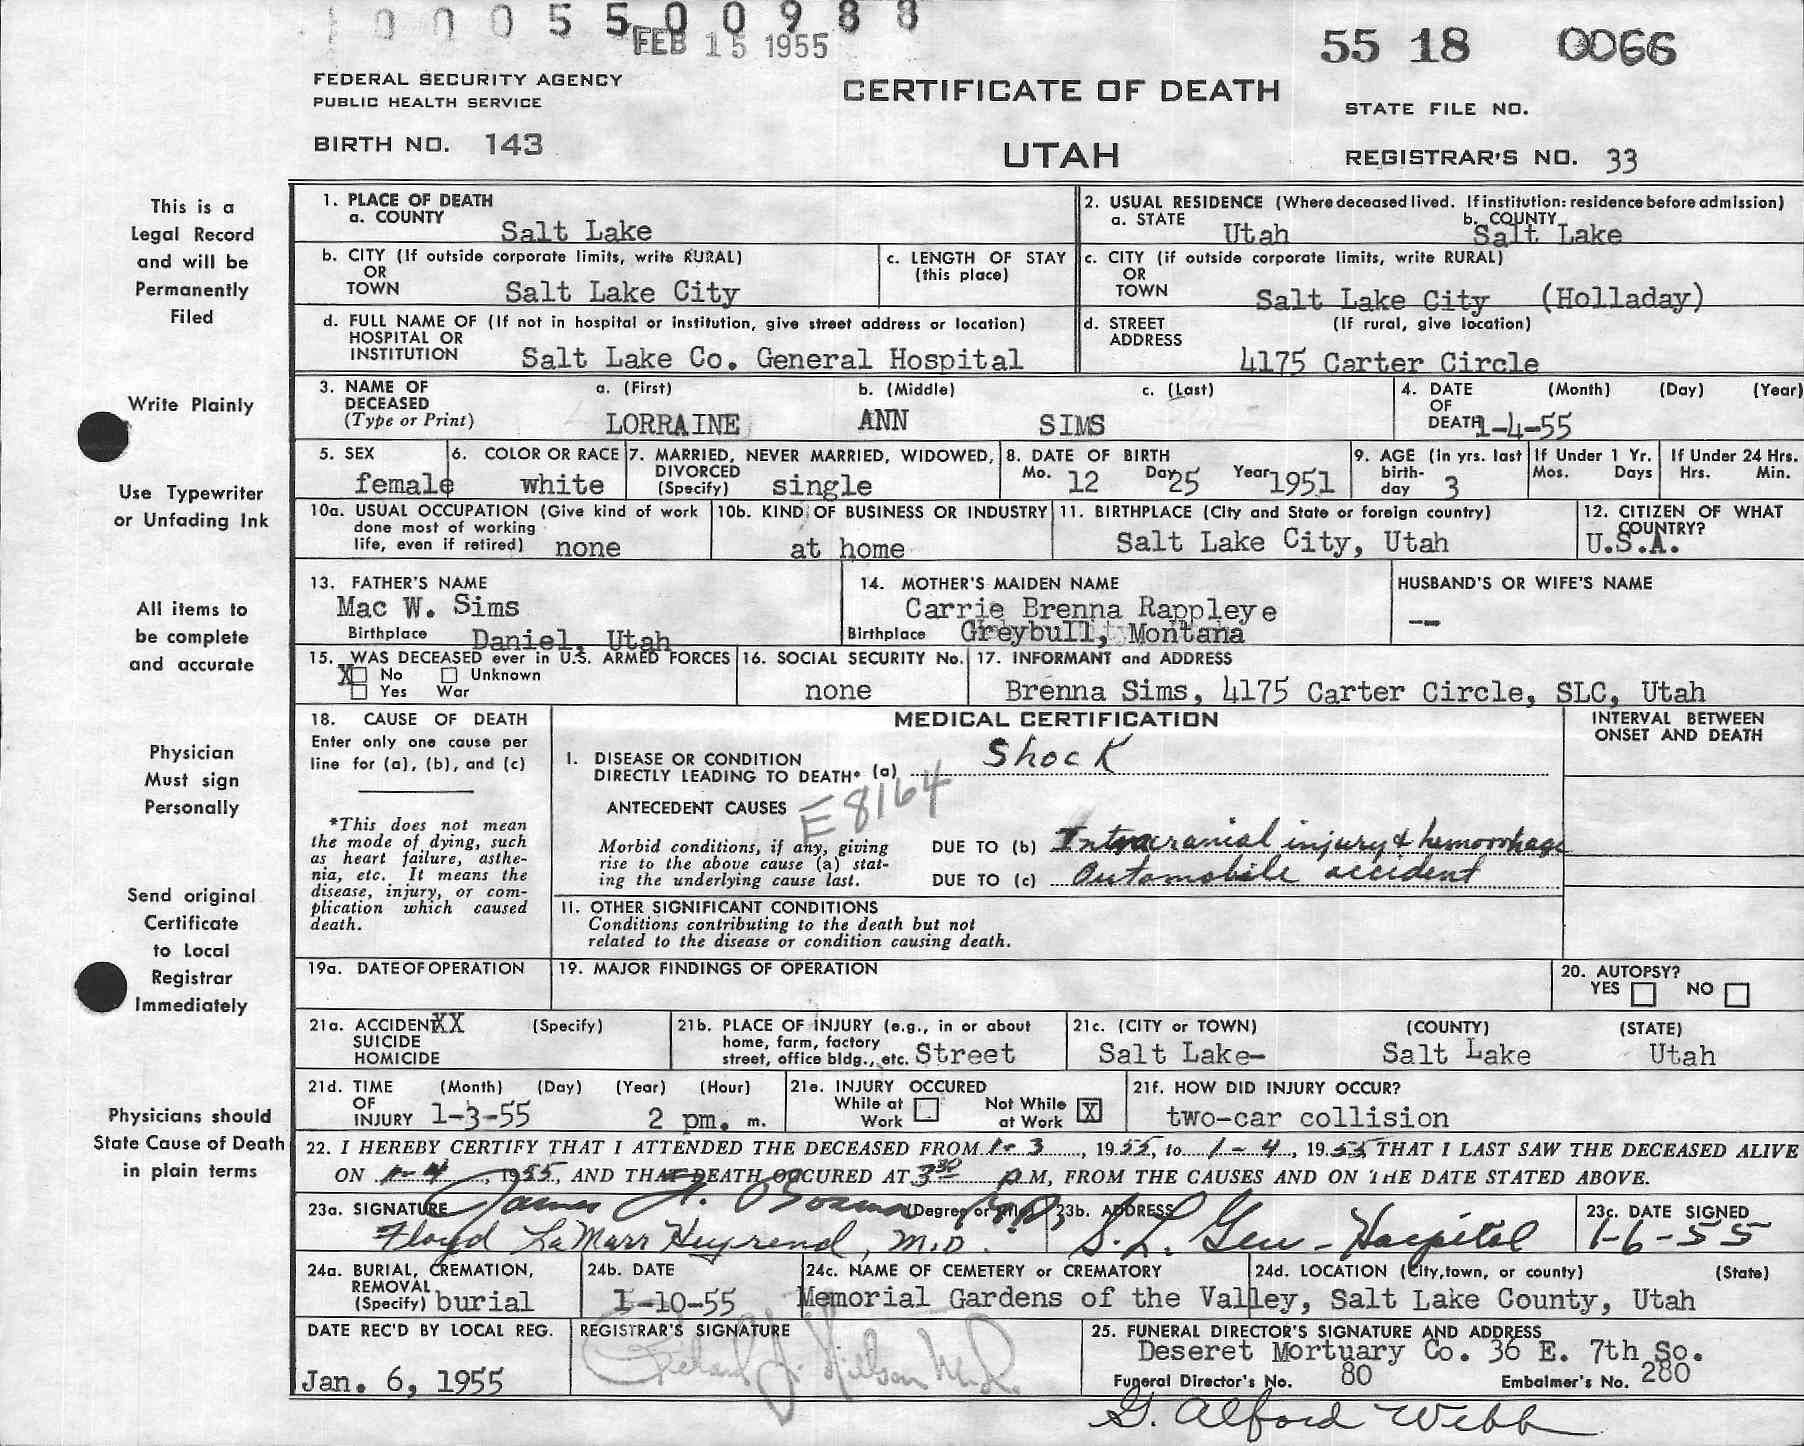 10005500988
FEB 15 1955
55 18 0066
FEDERAL SECURITY AGENCY
PUBLIC HEALTH SERVICE
CERTIFICATE OF DEATH
STATE FILE NO.
BIRTH NO. 143
UTAH
REGISTRAR'S NO. 33
This is a
Legal Record
and will be
Permanently
Filed
Write Plainly
Use Typewriter
or Unfading Ink
All items to
be complete
and accurate
Physician
Must sign
Personally
Send original
Certificate
to Local
Registrar
Immediately
Physicians should
State Cause of Death
in plain terms
1. PLACE OF DEATH
a. COUNTY Salt Lake
2. USUAL RESIDENCE (Where deceased lived. If institution: residence before admission)
a. STATE Utah b. COUNTY Salt Lake
b. CITY (If outside corporate limits, write RURAL)
OR
TOWN Salt Lake City
c. LENGTH OF STAY
(this place)
c. CITY (if outside corporate limits, write RURAL)
OR
TOWN Salt Lake City (Holladay)
d. FULL NAME OF (If not in hospital or institution, give street address or location)
HOSPITAL OR
INSTITUTION Salt Lake Co. General Hospital
d. STREET (If rural, give location)
ADDRESS
4175 Carter Circle
3. NAME OF a. (First) b. (Middle) c. (Last)
DECEASED
(Type or Print) LORRAINE ANN SIMS
4. DATE (Month) (Day) (Year)
OF
DEATH 1-4-55
5. SEX
female
6. COLOR OR RACE
white
7. MARRIED, NEVER MARRIED, WIDOWED,
DIVORCED
(Specify) single
8. DATE OF BIRTH
Mo. 12 Day 25 Year 1951
9. AGE (In yrs. last
birth-
day 3
If Under 1 Yr.
Mos. Days
If Under 24 Hrs.
Hrs. Min.
10a. USUAL OCCUPATION (Give kind of work
done most of working
life, even if retired) none
10b. KIND OF BUSINESS OR INDUSTRY
at home
11. BIRTHPLACE (City and State or foreign country)
Salt Lake City, Utah
12. CITIZEN OF WHAT
COUNTRY?
U.S.A.
13. FATHER'S NAME
Mac W. Sims
Birthplace Daniel, Utah
14. MOTHER'S MAIDEN NAME
Carrie Brenna Rappleye
Birthplace Greybull, Montana
HUSBAND'S OR WIFE'S NAME
--
15. WAS DECEASED ever in U.S. ARMED FORCES
X No Unknown
Yes War
16. SOCIAL SECURITY No.
none
17. INFORMANT and ADDRESS
Brenna Sims, 4175 Carter Circle, SLC, Utah
18. CAUSE OF DEATH
Enter only one cause per
line for (a), (b), and (c)
*This does not mean
the mode of dying, such
as heart failure, asthe-
nia, etc. It means the
disease, injury, or com-
plication which caused
death.
MEDICAL CERTIFICATION
INTERVAL BETWEEN
ONSET AND DEATH
I. DISEASE OR CONDITION
DIRECTLY LEADING TO DEATH* (a) Shock
ANTECEDENT CAUSES E8164
Morbid conditions, if any, giving
rise to the above cause (a) stat-
ing the underlying cause last.
DUE TO (b) Intracranial injury & hemorrhage
DUE TO (c) Automobile accident
II. OTHER SIGNIFICANT CONDITIONS
Conditions contributing to the death but not
related to the disease or condition causing death.
19a. DATE OF OPERATION
19. MAJOR FINDINGS OF OPERATION
20. AUTOPSY?
YES NO
21a. ACCIDENT XX (Specify)
SUICIDE
HOMICIDE
21b. PLACE OF INJURY (e.g., in or about
home, farm, factory
street, office bldg., etc. Street
21c. (CITY or TOWN) (COUNTY) (STATE)
Salt Lake- Salt Lake Utah
21d. TIME (Month) (Day) (Year) (Hour)
OF
INJURY 1-3-55 2 pm. m.
21e. INJURY OCCURED
While at Work Not While at Work X
21f. HOW DID INJURY OCCUR?
two-car collision
22. I HEREBY CERTIFY THAT I ATTENDED THE DECEASED FROM 1-3, 1955, to 1-4, 1955 THAT I LAST SAW THE DECEASED ALIVE
ON 1-4, 1955, AND THAT DEATH OCCURED AT 3:30 P.M, FROM THE CAUSES AND ON THE DATE STATED ABOVE.
23a. SIGNATURE James (Degree or title)
Floyd LaMarr Heyrend, M.D.
23b. ADDRESS
S.L. Gen-Hospital
23c. DATE SIGNED
1-6-55
24a. BURIAL, CREMATION,
REMOVAL
(Specify) burial
24b. DATE
1-10-55
24c. NAME OF CEMETERY or CREMATORY
24d. LOCATION (City, town, or county) (State)
Memorial Gardens of the Valley, Salt Lake County, Utah
DATE REC'D BY LOCAL REG.
Jan. 6, 1955
REGISTRAR'S SIGNATURE
25. FUNERAL DIRECTOR'S SIGNATURE AND ADDRESS
Deseret Mortuary Co. 36 E. 7th So.
Funeral Director's No. 80 Embalmer's No. 280
G. Alford Webb